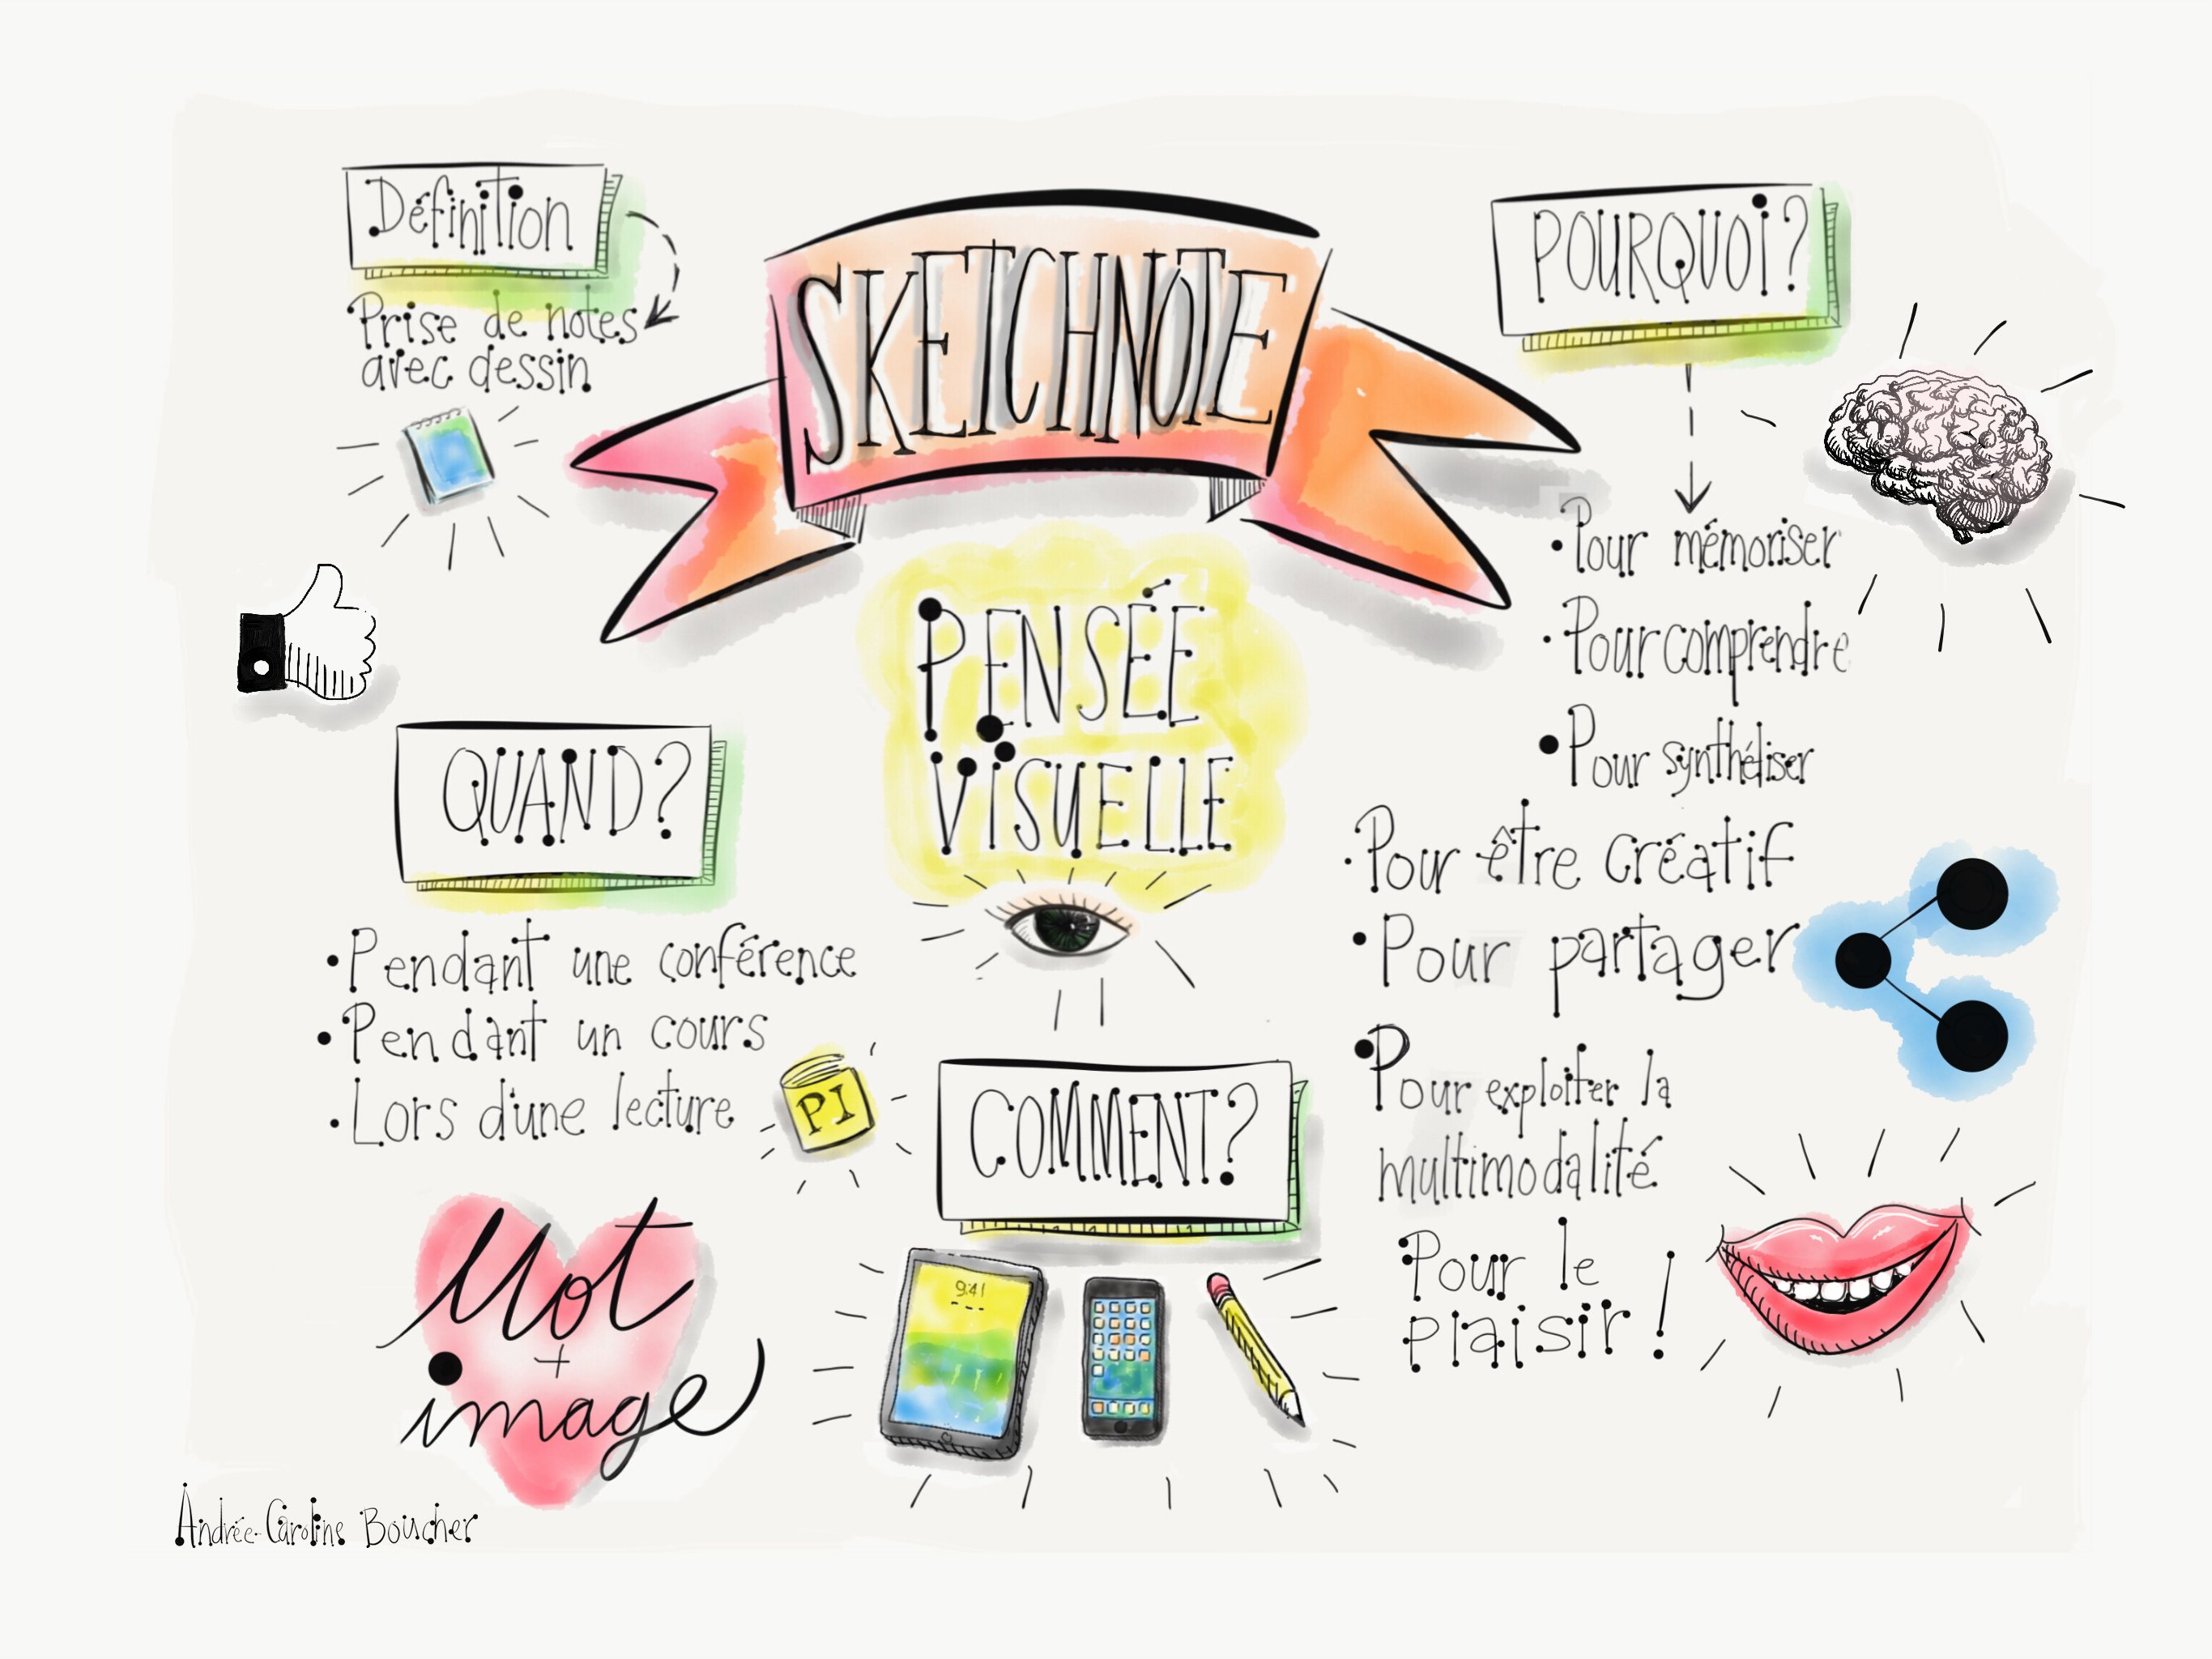 Définition
Prise de notes
avec dessin
SKETCHNOTE
PENSÉE
VISUELLE
POURQUOI?
• Pour mémoriser
• Pour comprendre
• Pour synthéliser
• Pour être créatif
• Pour partager
• Pour exploiter la
multimodalité
• Pour le
plaisir!
QUAND?
• Pendant une conférence
• Pendant un cours
• Lors d'une lecture
PI
COMMENT?
9:41
Mot
+
image
Andrée-Caroline Boucher